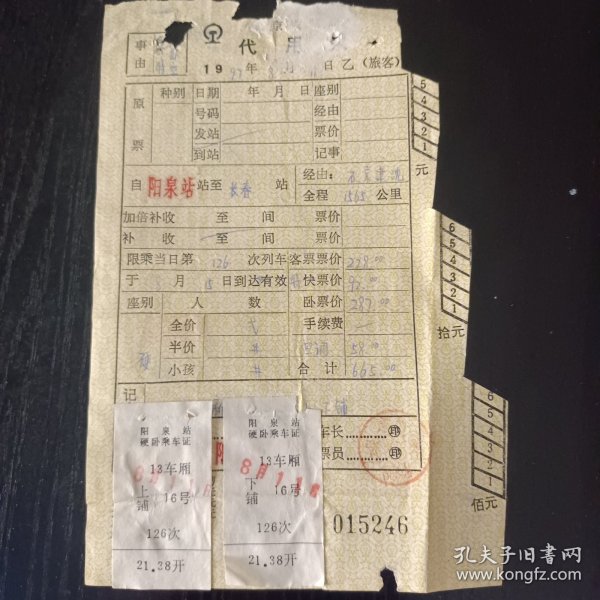 事由
代用
19 年 月 日 乙(旅客)
原票
种别 日期 年 月 日 座别
号码 经由
发站 票价
到站 记事
自 阳泉站 站至 长春 站 经由:
全程 1565 公里
加倍补收 至 间 票价
补收 至 间 票价
限乘当日第 126 次列车 客票票价 228.00
于 8 月 15 日到达有效 快票价 92.00
座别 人数 卧票价 287.00
全价 手续费
硬 半价 # 空调 58.00
小孩 # 合计 665.00
记 铺
车长 印
票员 印
015246
阳泉站
硬卧乘车证
13车厢
8月11日
上铺 16号
126次
21.38开
阳泉站
硬卧乘车证
13车厢
8月11日
下铺 16号
126次
21.38开
5
4
3
2
1
元
6
5
4
3
2
1
拾元
6
5
4
3
2
1
佰元
孔夫子旧书网
www.kongfz.com